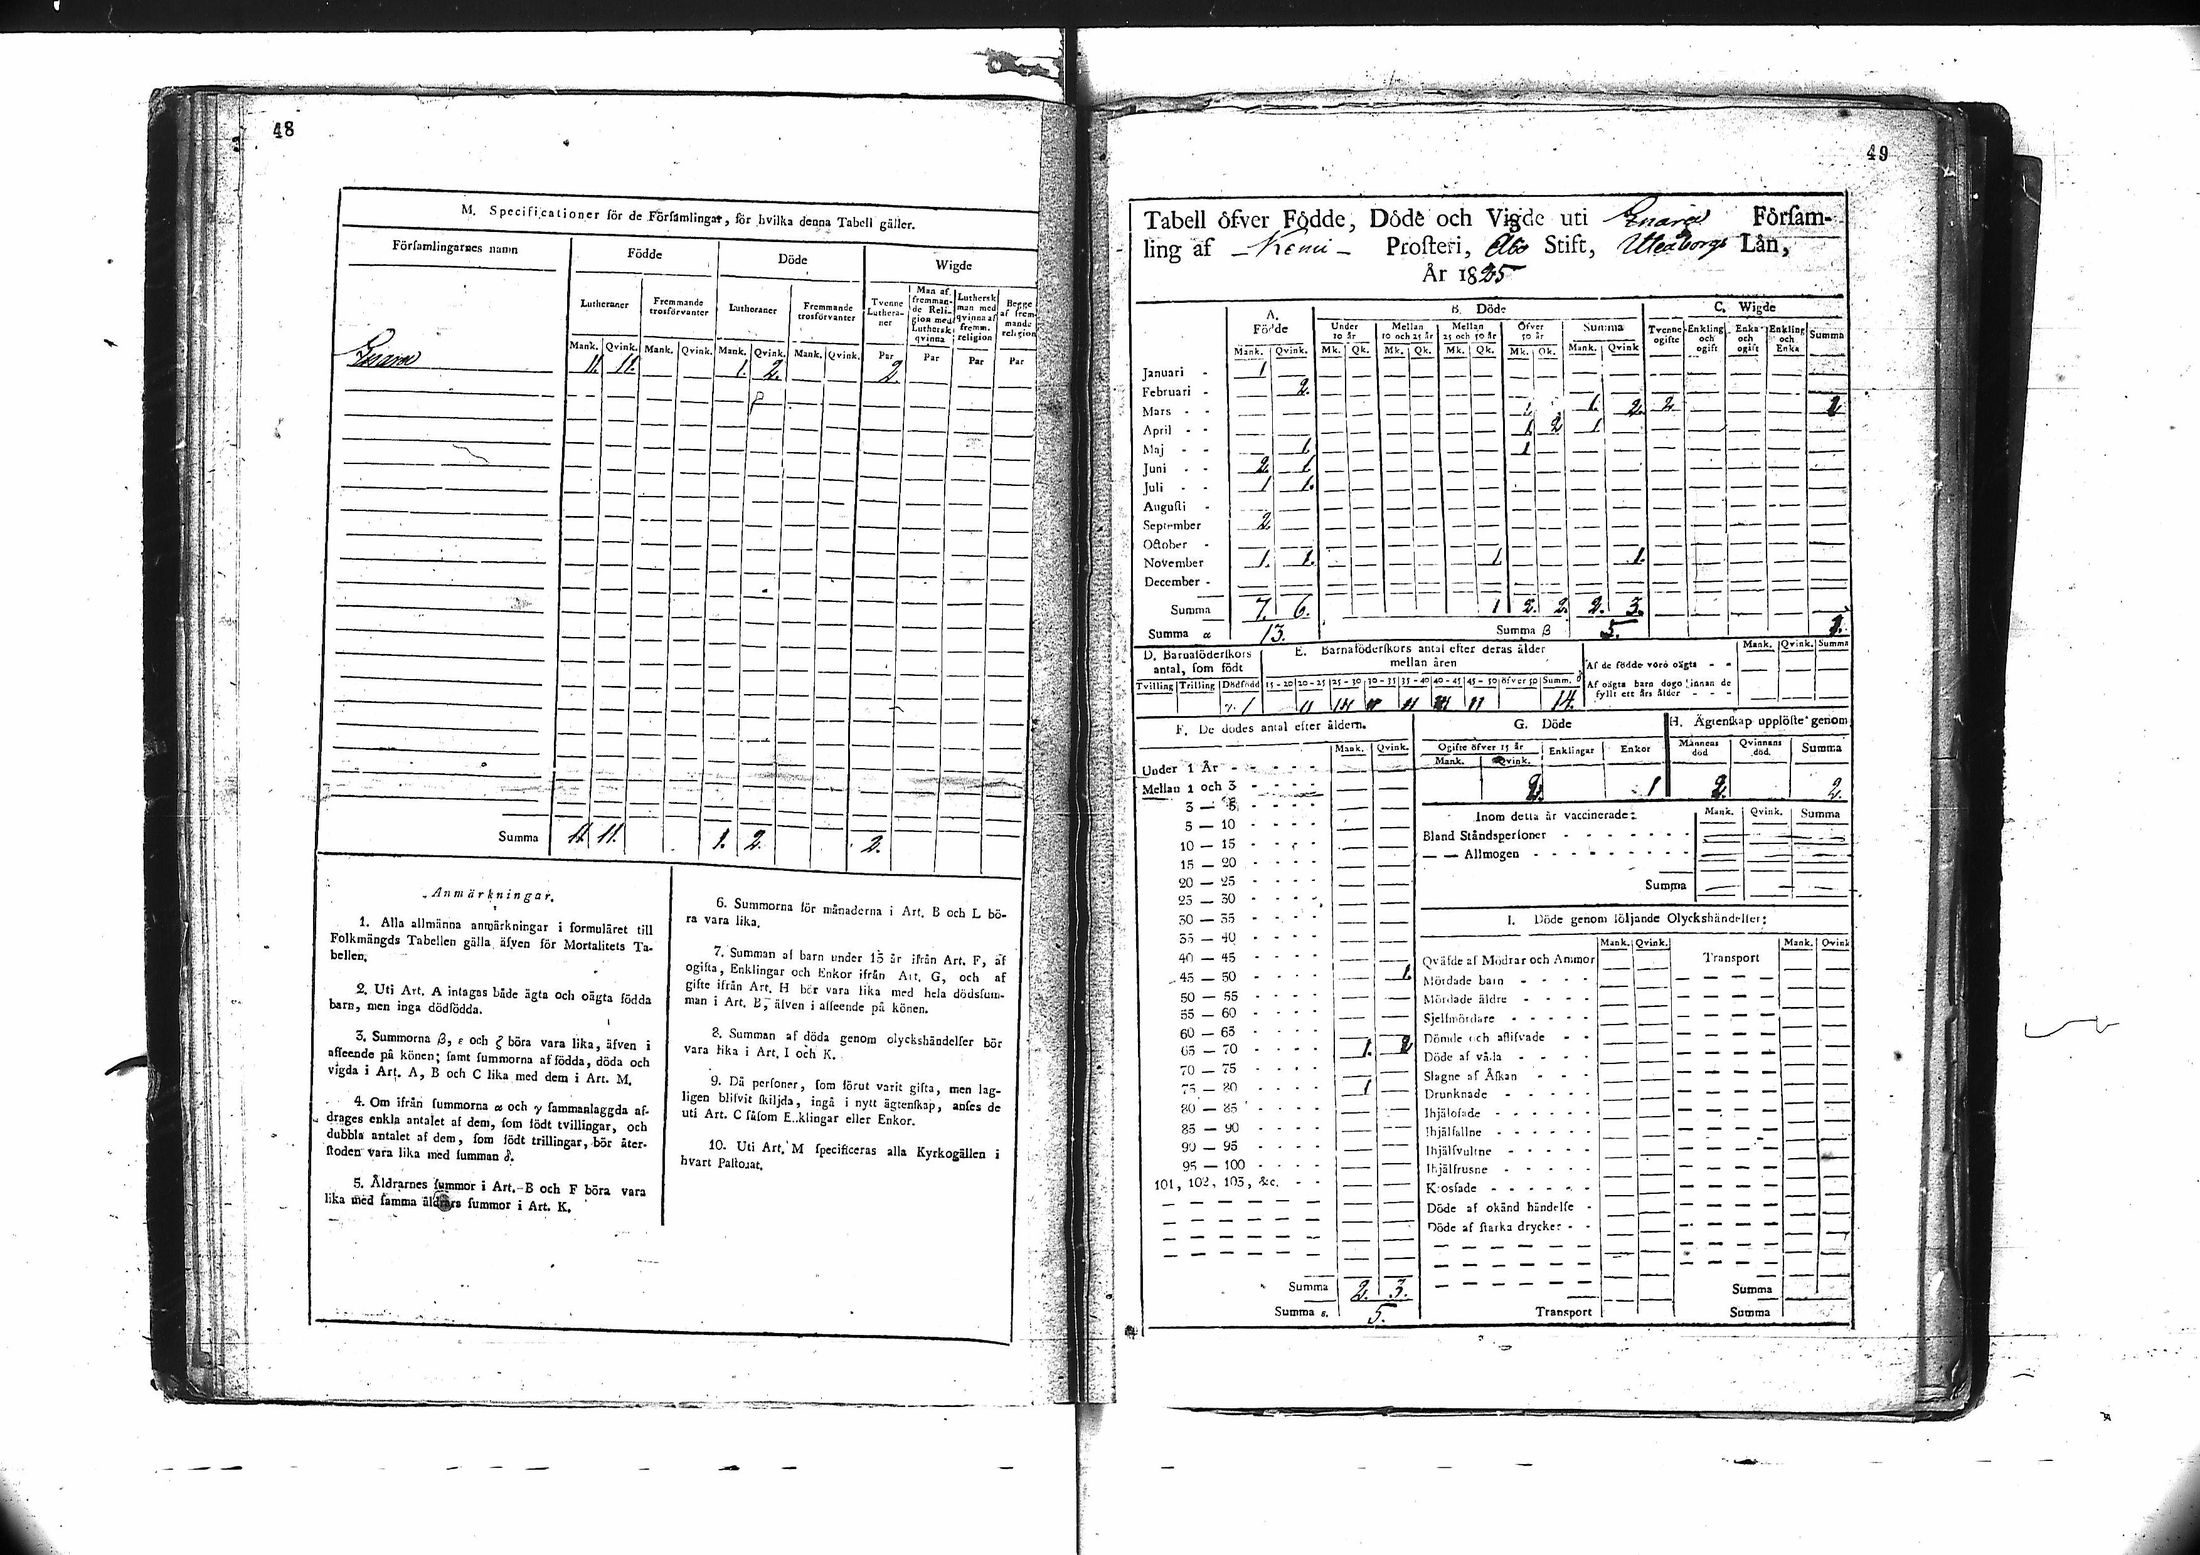 48
M. Specificationer för de Församlingar, för hvilka denna Tabell gäller.
Församlingarnes namn
Födde
Döde
Wigde
Lutheraner
Fremmande trosförvanter
Lutheraner
Fremmande trosförvanter
Tvenne Lutheraner
Man af fremmande Religion med Luthersk qvinna
Luthersk man med qvinna af fremm. religion
Begge af fremmande religion
Mank. Qvink. Mank. Qvink. Mank. Qvink. Mank. Qvink. Par Par Par Par
Enara 11. 11. 1. 2. 2.
Summa 11. 11. 1. 2. 2.
Anmärkningar.
1. Alla allmänna anmärkningar i formuläret till
Folkmängds Tabellen gälla äfven för Mortalitets Ta-
bellen.
2. Uti Art. A intagas både ägta och oägta födda
barn, men inga dödfödda.
3. Summorna β, ε och ζ böra vara lika, äfven i
affeende på könen; samt summorna af födda, döda och
vigda i Art. A, B och C lika med dem i Art. M.
4. Om ifrån summorna α och γ sammanlaggda af-
drages enkla antalet af dem, som födt tvillingar, och
dubbla antalet af dem, som födt trillingar, bör åter-
stoden vara lika med summan δ.
5. Åldrarnes summor i Art. B och F böra vara
lika med samma åldrars summor i Art. K.
6. Summorna för månaderna i Art. B och L bö-
ra vara lika.
7. Summan af barn under 15 år ifrån Art. F, af
ogifta, Enklingar och Enkor ifrån Art. G, och af
gifte ifrån Art. H bör vara lika med hela dödssum-
man i Art. B, äfven i affeende på könen.
8. Summan af döda genom olyckshändelser bör
vara lika i Art. I och K.
9. Då personer, som förut varit gifta, men lag-
ligen blifvit skiljda, ingå i nytt ägtenskap, anses de
uti Art. C såsom E..klingar eller Enkor.
10. Uti Art. M specificeras alla Kyrkogällen i
hvart Pastorat.
49
Tabell öfver Födde, Döde och Vigde uti Enara Församling af Kemi Prosteri, Åbo Stift, Uleåborgs Län,
År 1825
A. Födde
B. Döde
C. Wigde
Under 10 år
Mellan 10 och 25 år
Mellan 25 och 50 år
Öfver 50 år
Summa
Tvenne ogifte
Enkling och ogift
Enka och ogift
Enkling och Enka
Summa
Mank. Qvink. Mk. Qk. Mk. Qk. Mk. Qk. Mk. Qk. Mank. Qvink
Januari 1
Februari 2.
Mars 1. 1. 2. 2. 2
April 1. 2 1.
Maj 1. 1
Juni 2. 1.
Juli 1 1.
Augusti
September 2.
October
November 1. 1. 1. 1.
December
Summa 7. 6. 1 2. 2. 2. 3.
Summa α 13. Summa β 5.
D. Barnaföderskors antal, som födt
Tvilling Trilling Dödfödd
γ. 1
E. Barnaföderskors antal efter deras ålder mellan åren
15 - 20 20 - 25 25 - 30 30 - 35 35 - 40 40 - 45 45 - 50 öfver 50 Summ. δ
14.
Mank. Qvink. Summa
Af de födde voro oägta
Af oägta barn dogo innan de
fyllt ett års ålder
F. De dödes antal efter åldern.
Mank. Qvink.
Under 1 År
Mellan 1 och 3
3 — 5
5 — 10
10 — 15
15 — 20
20 — 25
25 — 30
30 — 35
35 — 40
40 — 45
45 — 50 1.
50 — 55
55 — 60
60 — 65
65 — 70 1. 2
70 — 75
75 — 80 1
80 — 85
85 — 90
90 — 95
95 — 100
101, 102, 103, &c.
Summa 2. 3.
Summa ε. 5.
G. Döde
Ogifte öfver 15 år
Enklingar
Enkor
Mank. Qvink.
2. 1
H. Ägtenskap upplöste genom
Mannens död
Qvinnans död.
Summa
2. 2.
Inom detta år vaccinerade: Mank. Qvink. Summa
Bland Ståndspersoner
— — Allmogen
Summa
I. Döde genom följande Olyckshändelser:
Mank. Qvink. Mank. Qvink
Qväfde af Mödrar och Ammor Transport
Mördade barn
Mördade äldre
Sjelfmördare
Dömde och aflifvade
Döde af våda
Slagne af Åskan
Drunknade
Ihjälosade
Ihjälfallne
Ihjälsvultne
Ihjälfrusne
Krossade
Döde af okänd händelse
Döde af starka drycker
Summa
Transport Summa